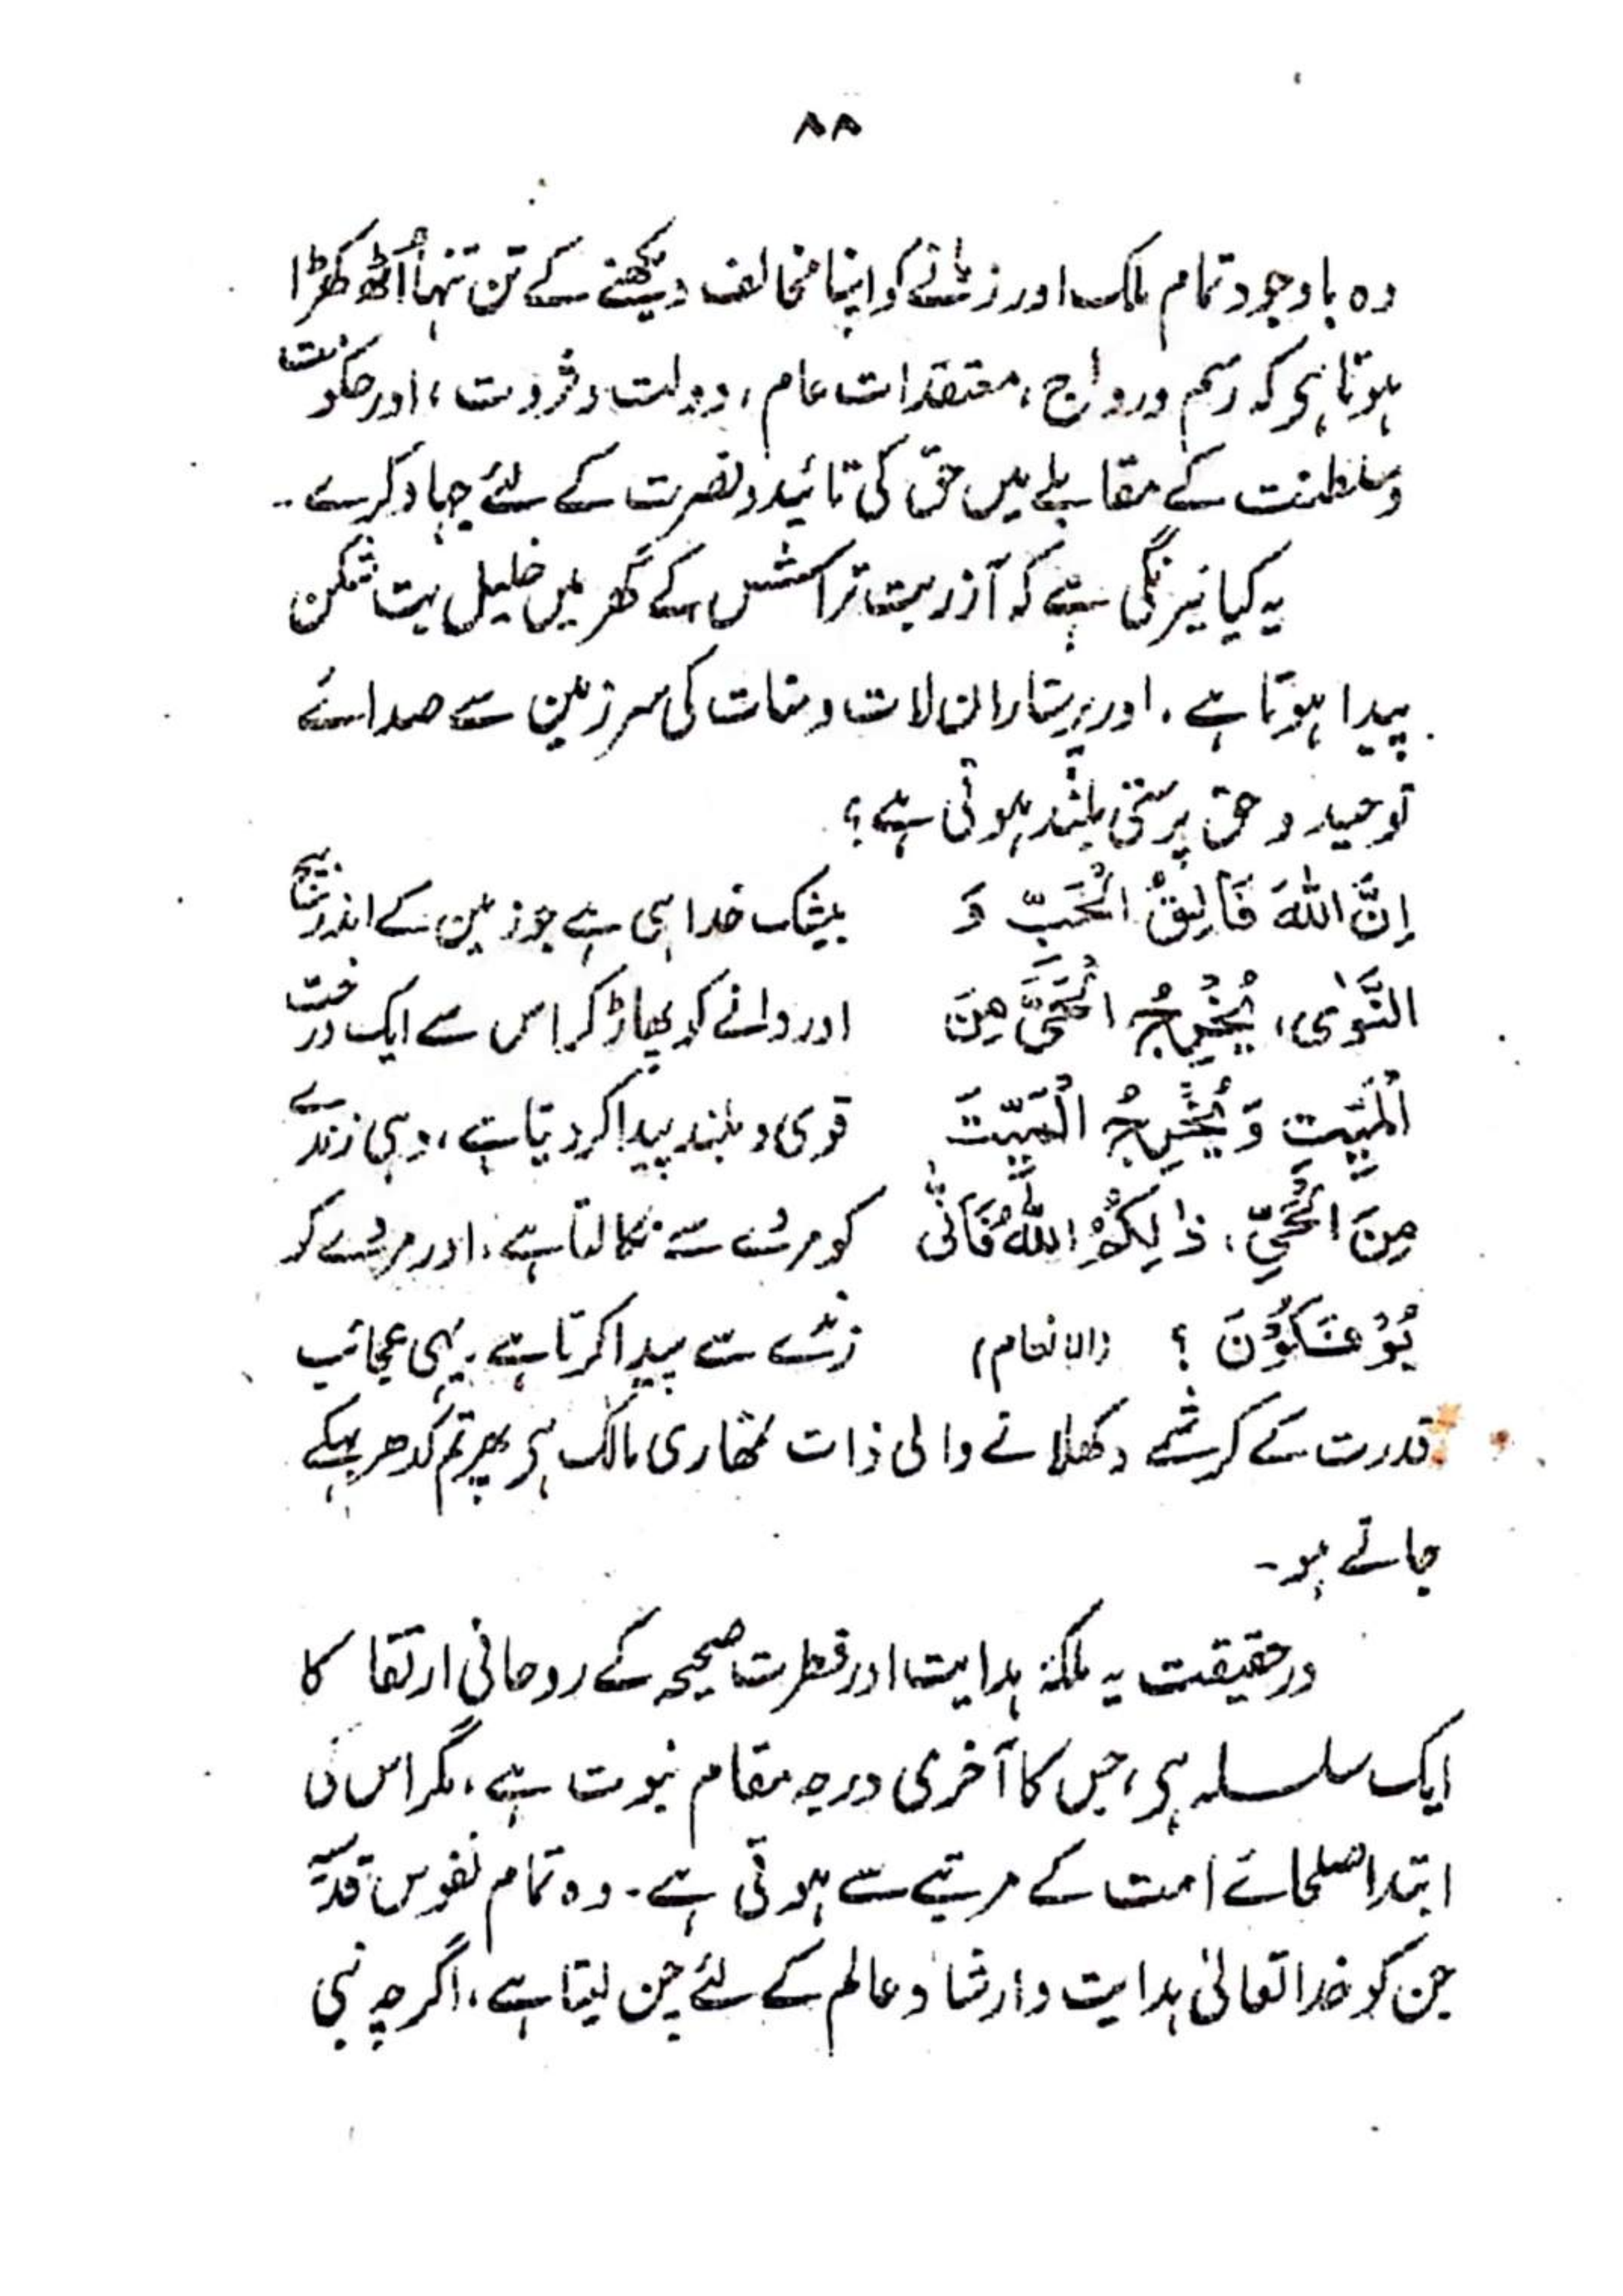 ۸۸
وہ باوجود تمام ملک اور زمانے کو اپنا مخالف دیکھنے کے تن تنہا اُٹھ کھڑا
ہوتا ہی کہ رسم ورواج، معتقدات عام، دولت وثروت، اور حکومت
وسلطنت کے مقابلے میں حق کی تائید ونصرت کے لئے جہاد کرے۔
یہ کیا نیرنگی ہے کہ آذر بت تراش کے گھر میں خلیل بت شکن
پیدا ہوتا ہے، اور پرستاران لات ومنات کی سرزمین سے صدائے
توحید و حق پرستی بلند ہوتی ہے؟
إِنَّ اللّٰهَ فَالِقُ الْحَبِّ وَ بیشک خدا ہی ہے جو زمین کے اندر بیج
النَّوٰی، یُخْرِجُ الْحَیَّ مِنَ اور دانے کو پھاڑ کر اس سے ایک درخت
الْمَیِّتِ وَیُخْرِجُ الْمَیِّتَ قوی و بلند پیدا کر دیتا ہے، وہی زندے
مِنَ الْحَیِّ، ذٰلِکُمُ اللّٰهُ فَاَنّٰی کو مردے سے نکالتا ہے، اور مردے کو
تُؤْفَکُوْنَ ؟ (الانعام) زندے سے پیدا کرتا ہے۔ یہی عجائب
قدرت کے کرشمے دکھلانے والی ذات تمھاری مالک ہی پھر تم کدھر بہکے
جاتے ہو۔
درحقیقت یہ ملکۂ ہدایت اور فطرت صحیحہ کے روحانی ارتقا کا
ایک سلسلہ ہی، جس کا آخری درجہ مقام نبوت ہے، مگر اس کی
ابتدا صلحائے امت کے مرتبے سے ہوتی ہے۔ وہ تمام نفوس قدسیہ
جن کو خدا تعالیٰ ہدایت وارشاد عالم کے لئے چن لیتا ہے، اگرچہ نبی